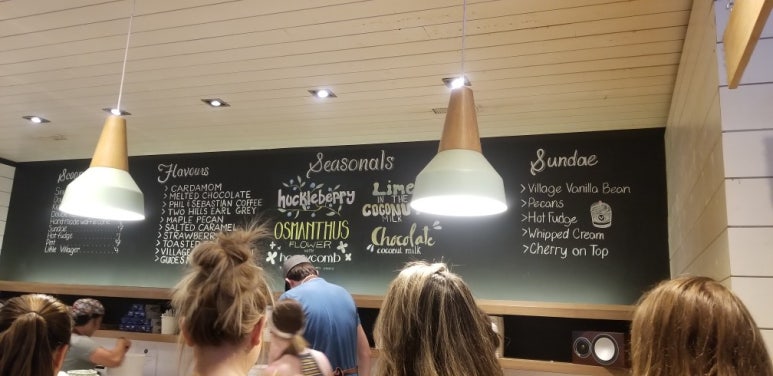 Scoops
Single
Double
Handmade Waffle Cone
Sundae
Hot fudge
Pint
Little Villager
Flavours
> CARDAMOM
> MELTED CHOCOLATE
> PHIL & SEBASTIAN COFFEE
> TWO HILLS EARL GREY
> MAPLE PECAN
> SALTED CARAMEL
> STRAWBERRY
> TOASTED
> VILLAGE
Seasonals
huckleberry
OSMANTHUS
FLOWER
WITH
honeycomb
LIME
IN THE
COCONUT
MILK
Chocolate
COCONUT MILK
Sundae
> Village Vanilla Bean
> Pecans
> Hot Fudge
> Whipped Cream
> Cherry on Top